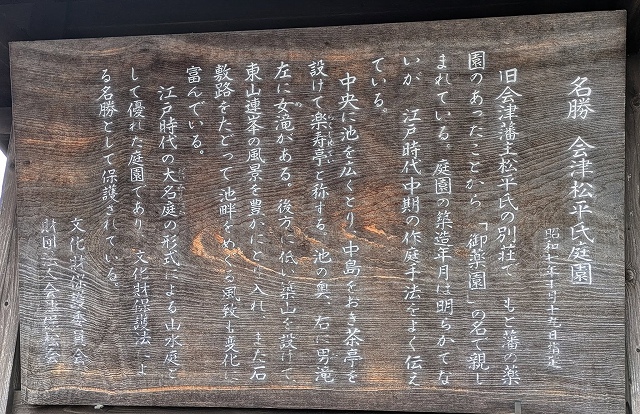 名勝 会津松平氏庭園
昭和七年十月十九日指定
旧会津藩主松平氏の別荘で もと藩の薬
園のあったことから 「御薬園」の名で親し
まれている。庭園の築造年月は明らかでな
いが 江戸時代中期の作庭手法をよく伝え
ている。
中央に池を広くとり、中島をおき茶亭を
設けて楽寿亭と称する。池の奥、右に男滝
左に女滝がある。後方に低い築山を設けて、
東山連峯の風景を豊かにとり入れ また石
敷路をたどって池畔をめぐる風致も変化に
富んでいる。
江戸時代の大名庭の形式による山水庭と
して優れた庭園であり、文化財保護法によ
る名勝として保護されている。
文化財保護委員会
財団法人会津保松会